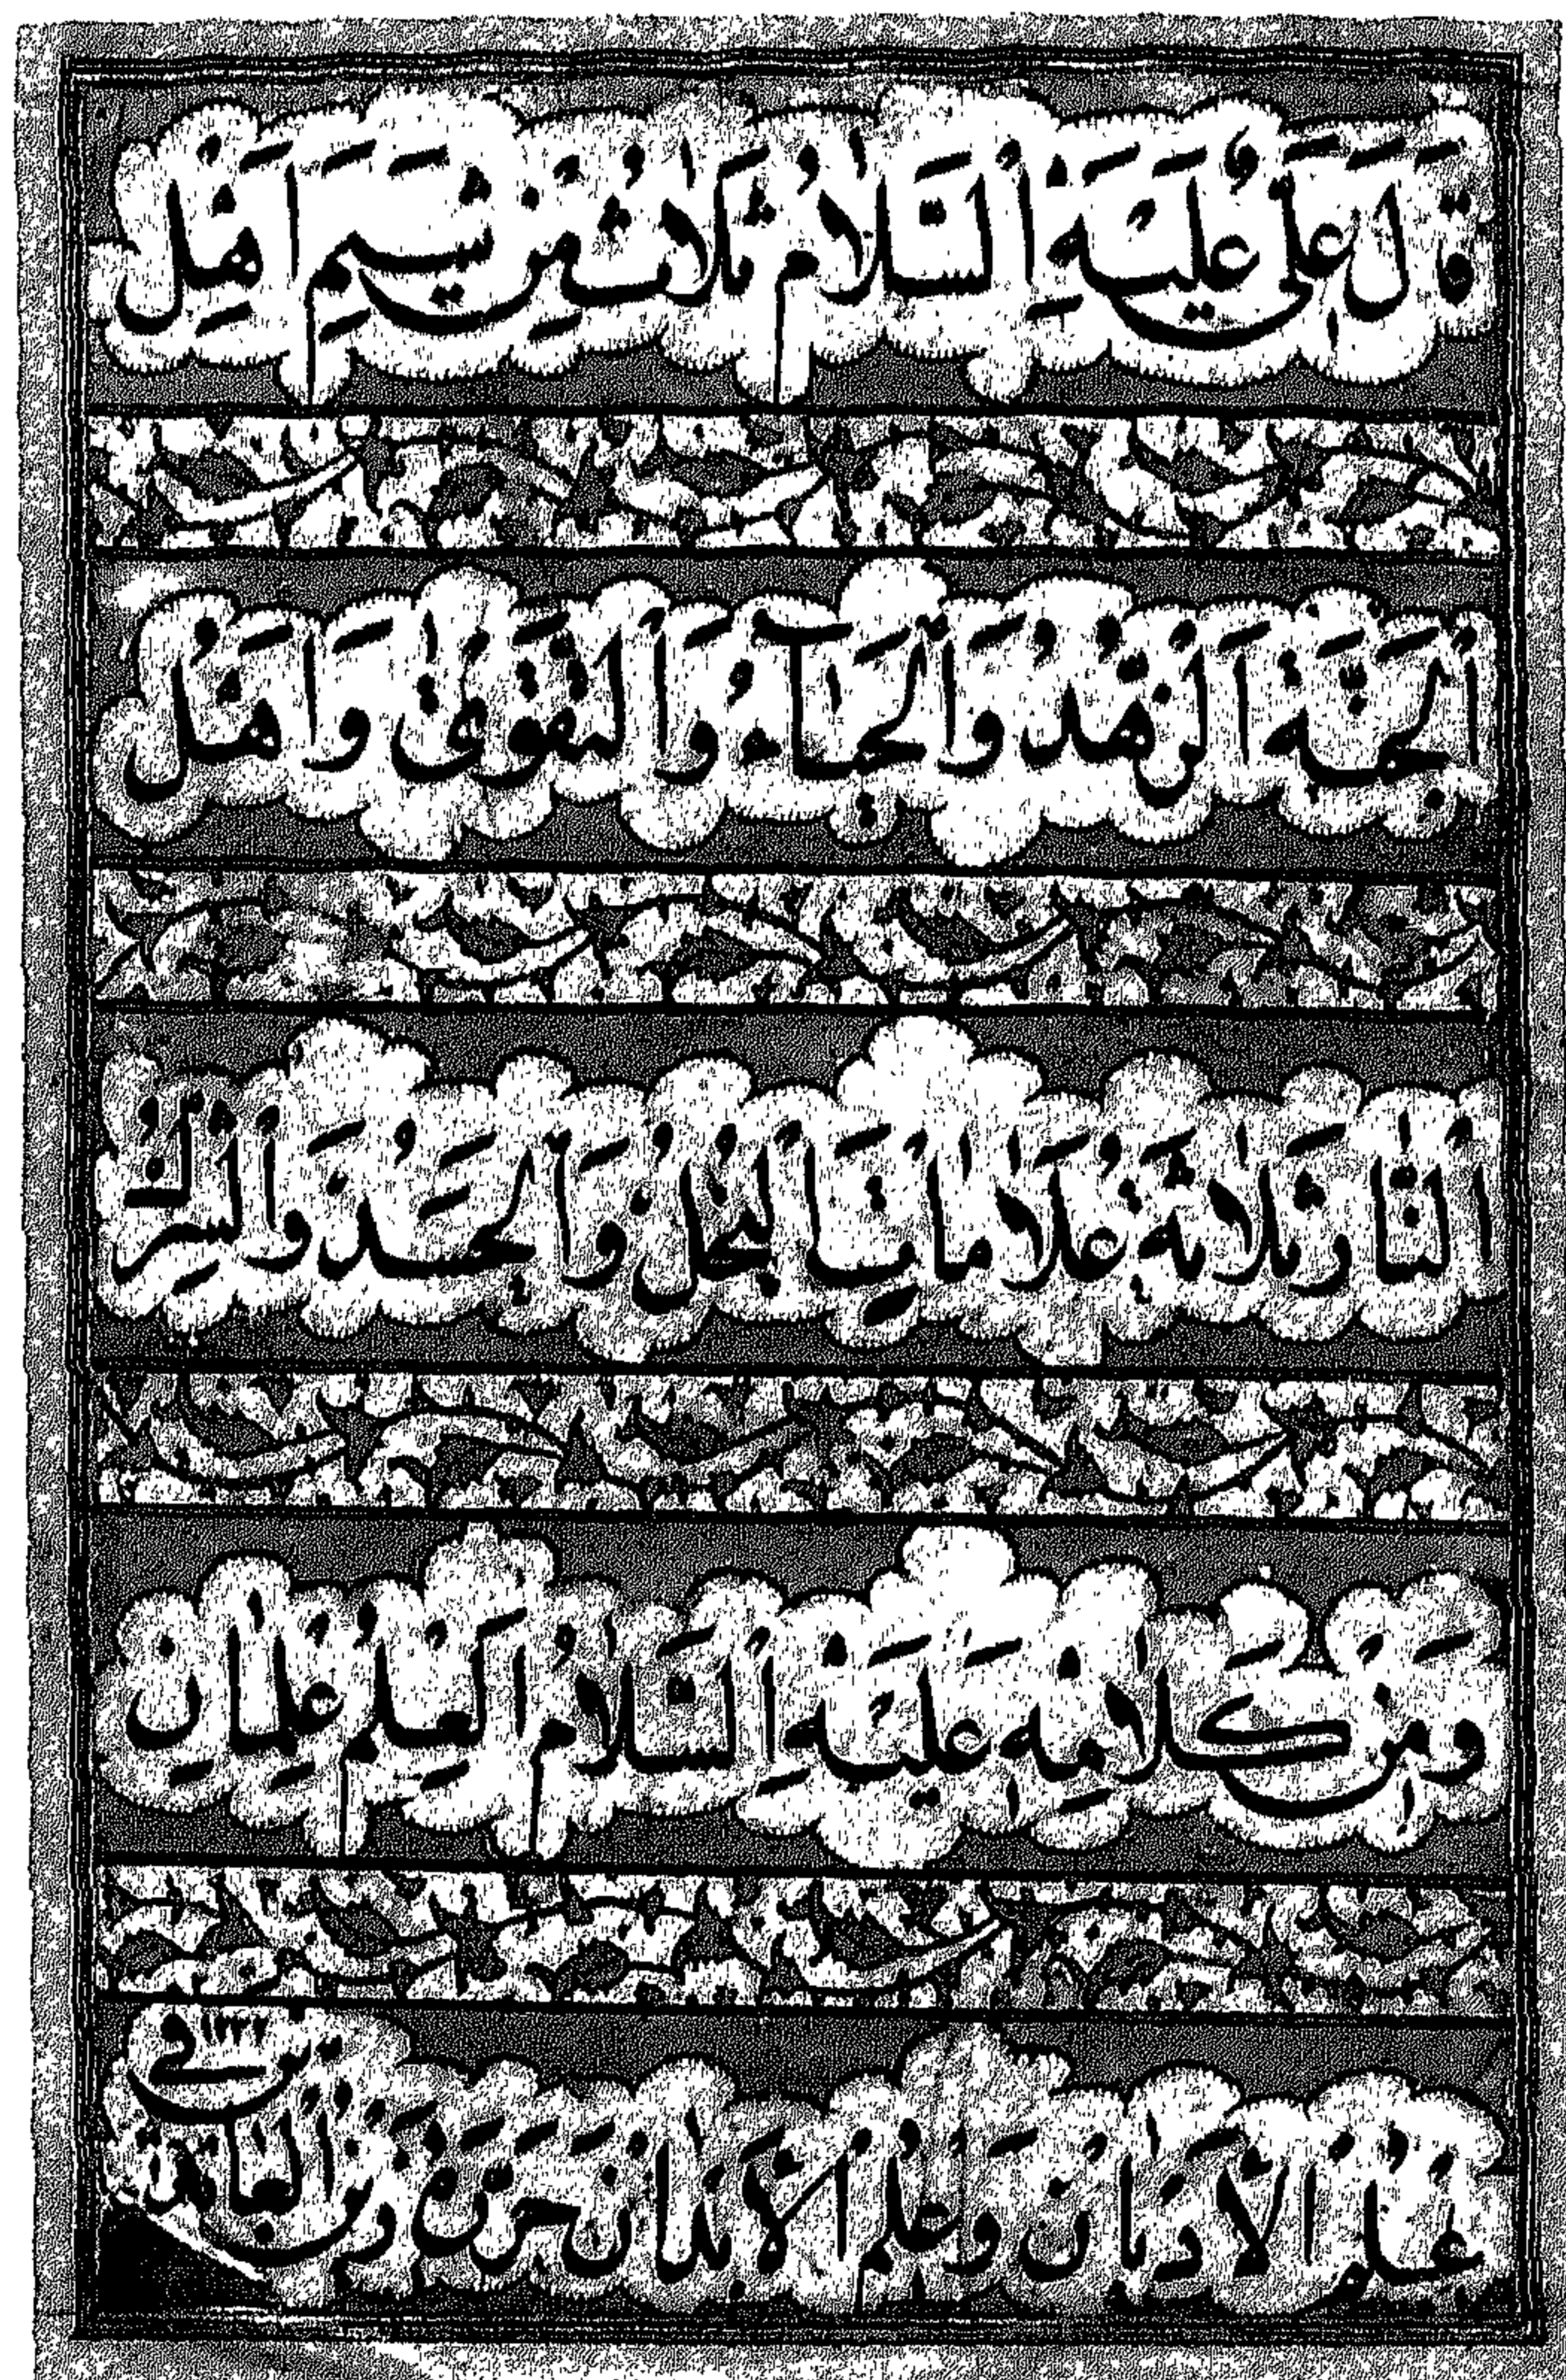 قَالَ عَلِيٌّ عَلَيْهِ السَّلَامُ ثَلَاثٌ مِنْ شِيَمِ أَهْلِ
الْجَنَّةِ الزُّهْدُ وَالْحَيَاءُ وَالتَّقْوَى وَأَهْلُ
النَّارِ ثَلَاثَةُ عَلَامَاتٍ الْبُخْلُ وَالْحَسَدُ وَالشِّرْكُ
وَمِنْ كَلَامِهِ عَلَيْهِ السَّلَامُ الْعِلْمُ عِلْمَانِ
عِلْمُ الْأَدْيَانِ وَعِلْمُ الْأَبْدَانِ
في ١٢٣٢